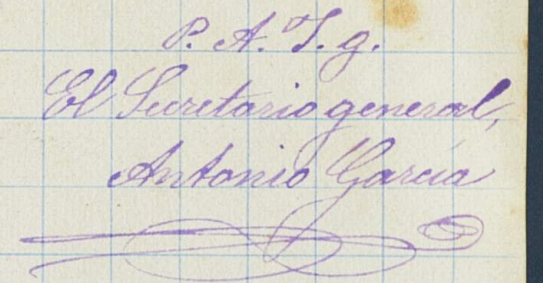 P. A. J. g.
El Secretario general,
Antonio García